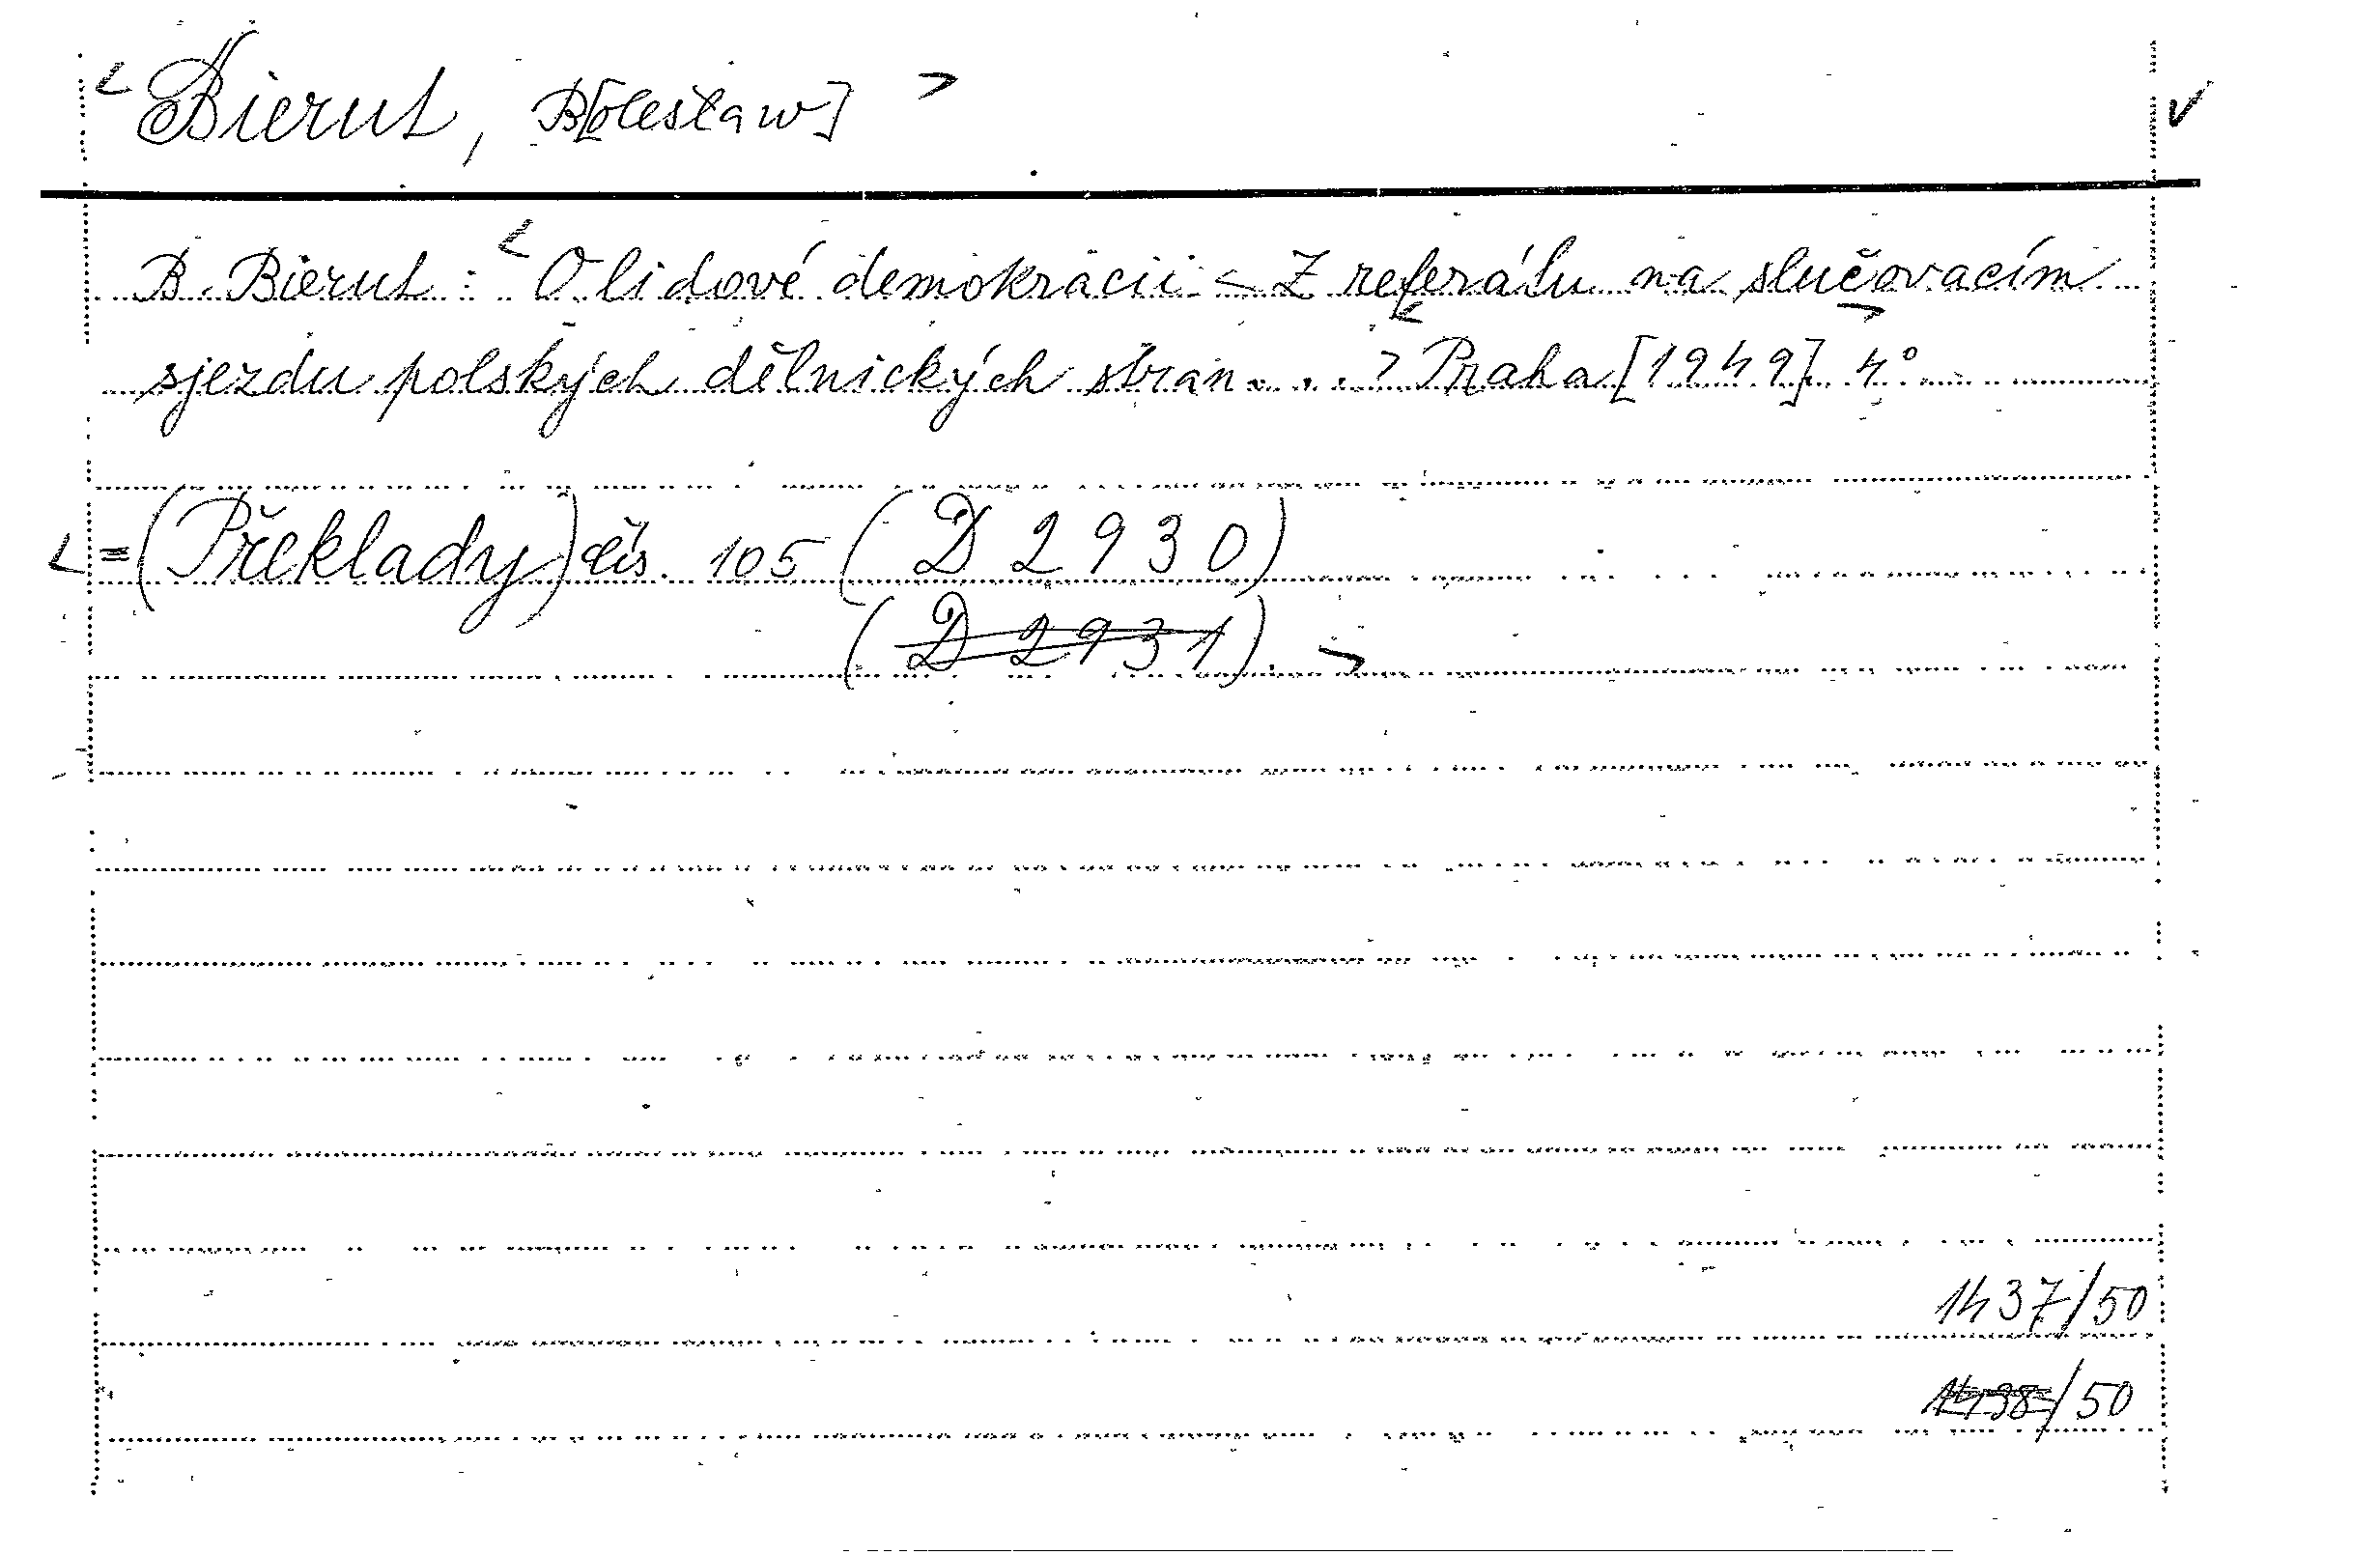 < Bierut, B[olesław] > √
B. Bierut: < O lidové demokracii < Z referátu na slučovacím >
sjezdu polských dělnických stran... > < Praha [1949]. 4°
< = (Překlady) čís. 105 (D 2930)
(D 2931). >
1437/50
1438/50